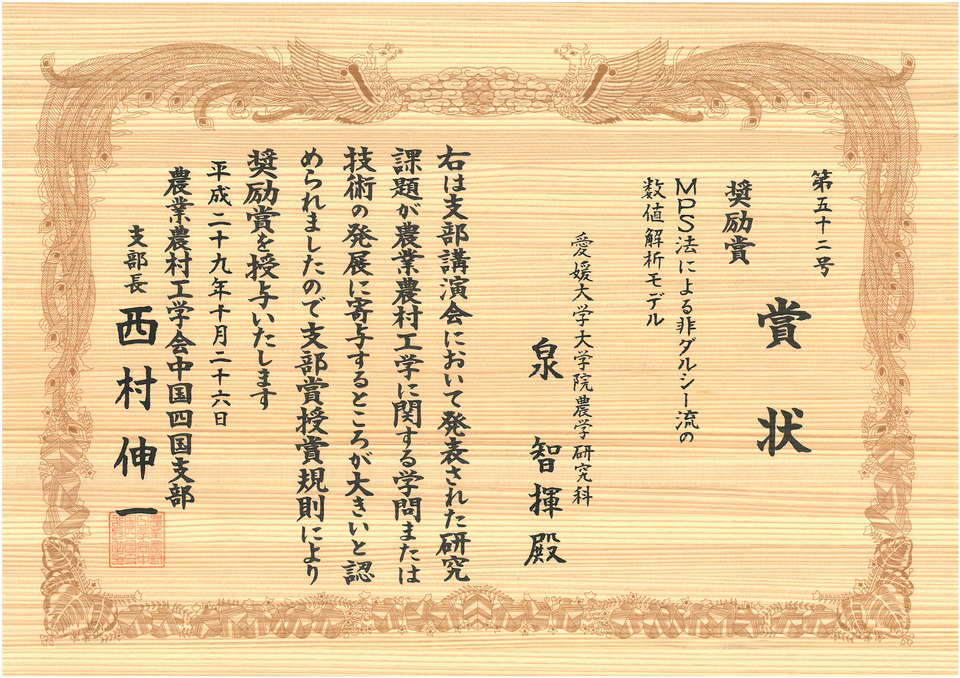 第五十二号
賞状
奨励賞
MPS法による非ダルシー流の
数値解析モデル
愛媛大学大学院農学研究科
泉 智揮 殿
右は支部講演会において発表された研究
課題が農業農村工学に関する学問または
技術の発展に寄与するところが大きいと認
められましたので支部賞授賞規則により
奨励賞を授与いたします
平成二十九年十月二十六日
農業農村工学会中国四国支部
支部長 西村伸一